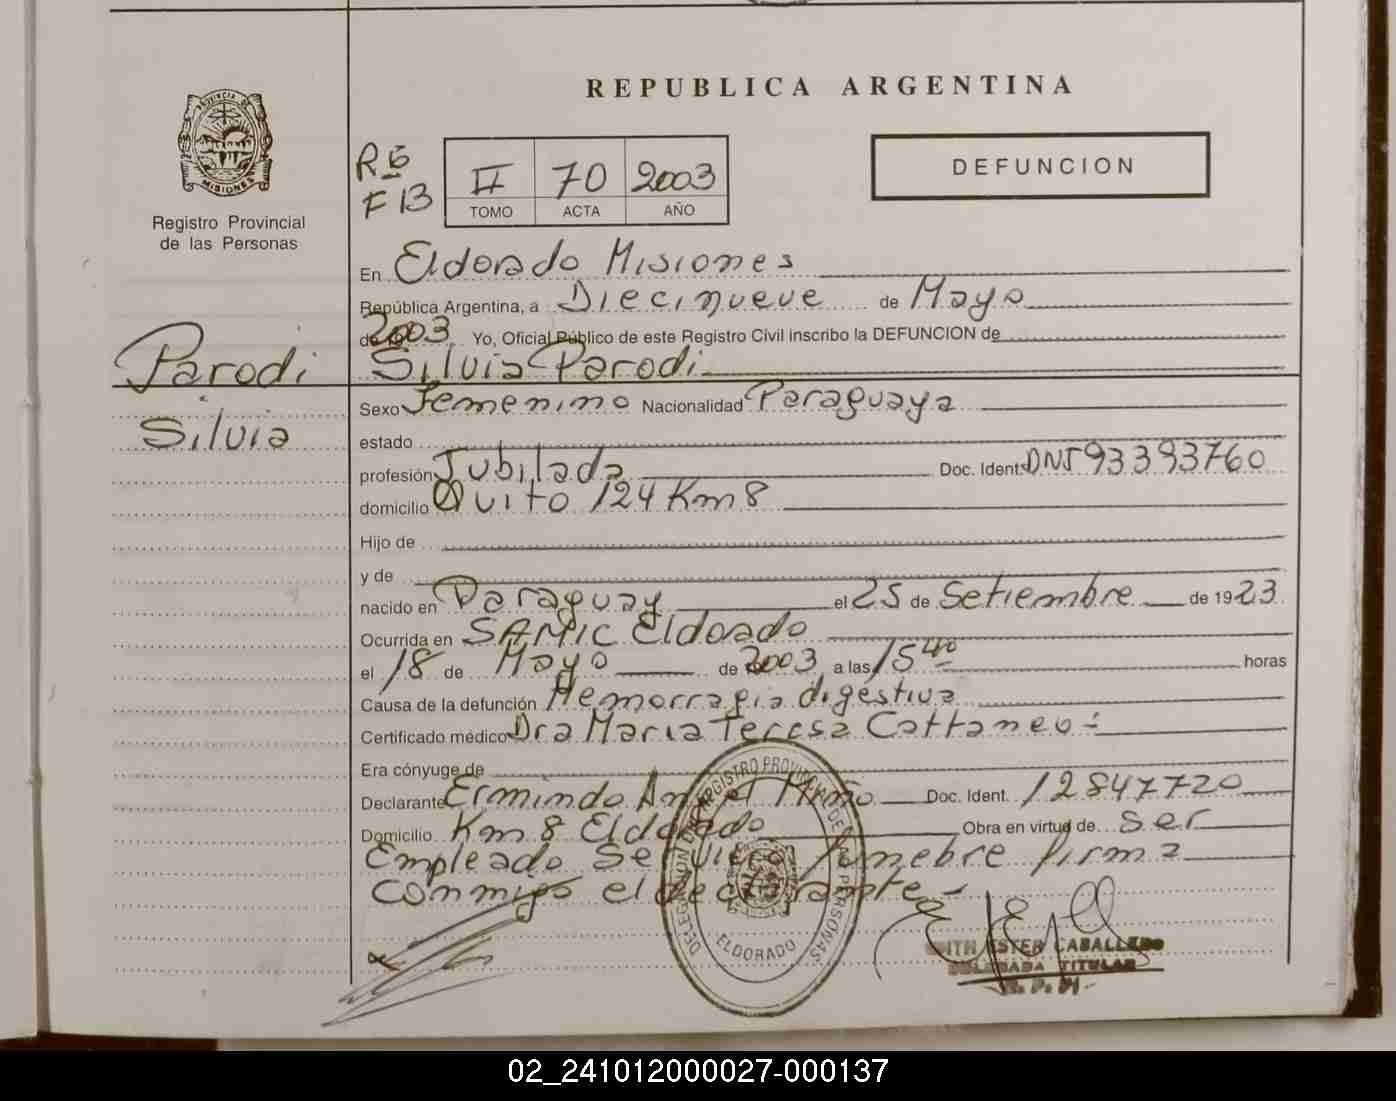 REPUBLICA ARGENTINA
PROVINCIA DE
MISIONES
Registro Provincial
de las Personas
R 6
F 13
II 70 2003
TOMO ACTA AÑO
DEFUNCION
En Eldorado Misiones
República Argentina, a Diecinueve de Mayo
de 2003 Yo, Oficial Público de este Registro Civil inscribo la DEFUNCION de
Parodi Silvia Parodi
Silvia
Sexo Femenino Nacionalidad Paraguaya
estado
profesión Jubilada Doc. Ident. DNI 93393760
domicilio Quito 124 Km 8
Hijo de
y de
nacido en Paraguay el 25 de Setiembre de 1923
Ocurrida en SAMIC Eldorado
el 18 de Mayo de 2003 a las 15 40 horas
Causa de la defunción Hemorragia digestiva
Certificado médico Dra Maria Teresa Cattaneo
Era cónyuge de
Declarante Ermindo Angel Doc. Ident. 12847720
Domicilio Km 8 Eldorado Obra en virtud de Ser
Empleado Servicio funebre firma
conmigo el declarante
DELEGACION DEL REGISTRO PROVINCIAL DE LAS PERSONAS
ELDORADO
EDITH ESTER CABALLERO
DELEGADA TITULAR
02_241012000027-000137